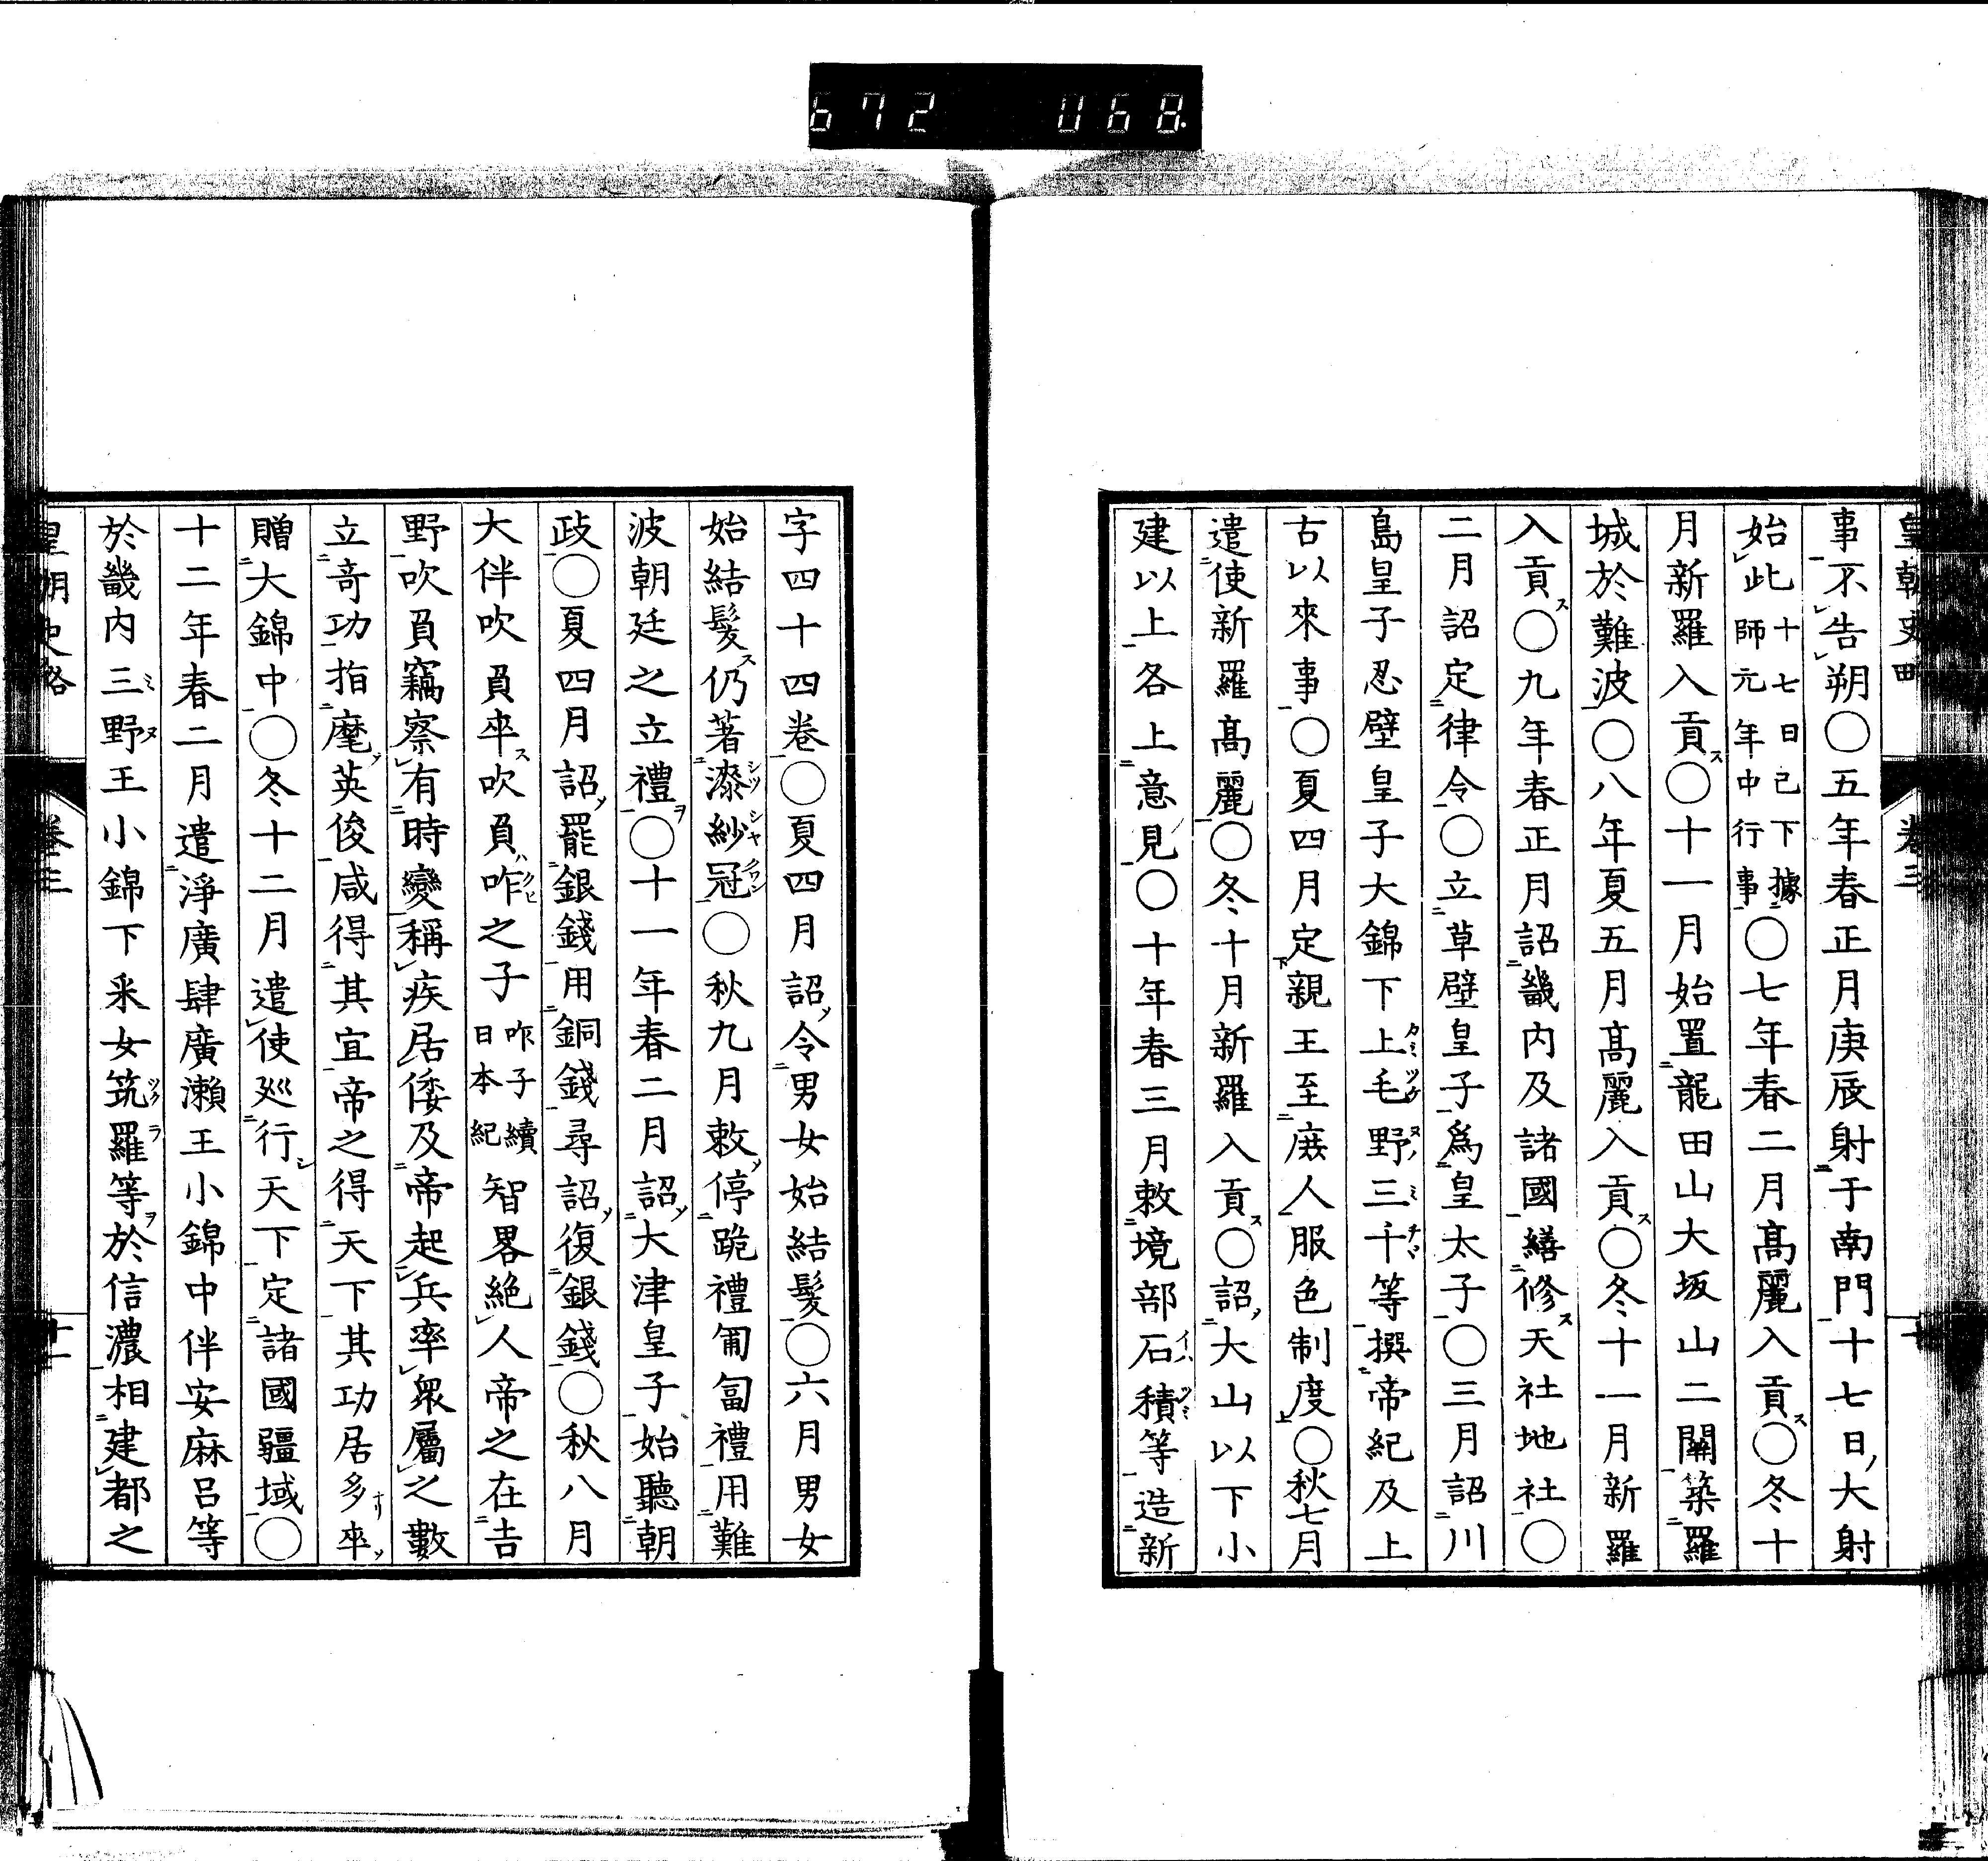 672 068
皇朝史略 卷三 十
事不告朔〇五年春正月庚辰射于南門十七日大射
始此十七日已下據師元年中行事〇七年春二月髙麗入貢ス〇冬十
月新羅入貢ス〇十一月始置龍田山大坂山二關築羅
城於難波〇八年夏五月髙麗入貢ス〇冬十一月新羅
入貢ス〇九年春正月詔畿内及諸國繕修ス天社地社〇
二月詔定律令〇立草壁皇子爲皇太子〇三月詔川
島皇子忍壁皇子大錦下上毛野三千等撰帝紀及上
古以來事〇夏四月定親王至庶人服色制度〇秋七月
遣使新羅髙麗〇冬十月新羅入貢ス〇詔大山以下小
建以上各上意見〇十年春三月敕境部石積等造新
字四十四卷〇夏四月詔令男女始結髮〇六月男女
始結髮ス仍著漆紗冠〇秋九月敕停跪禮匍匐禮用難
波朝廷之立禮ヲ〇十一年春二月詔大津皇子始聽朝
政〇夏四月詔罷銀錢用銅錢尋詔復銀錢〇秋八月
大伴吹負卒ス吹負ハ咋之子咋子續日本紀智畧絶人帝之在吉
野吹負竊察有時變稱疾居倭及帝起兵率衆屬之數
立奇功指麾英俊咸得其宜帝之得天下其功居多卒
贈大錦中〇冬十二月遣使廵行天下定諸國疆域〇
十二年春二月遣淨廣肆廣瀬王小錦中伴安麻呂等
於畿内三野王小錦下采女筑羅等ヲ於信濃相建都之
皇朝史略 卷三 十一